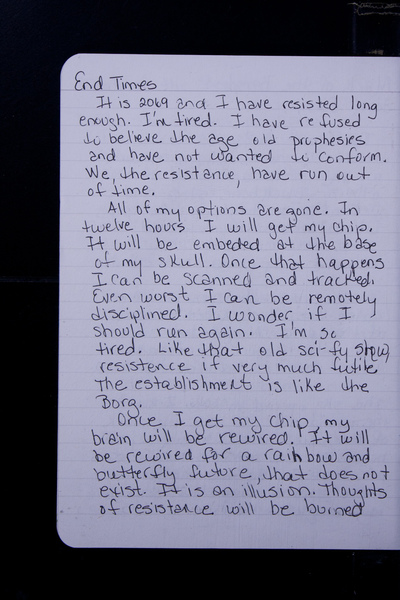 End Times
It is 2069 and I have resisted long
enough. I'm tired. I have refused
to believe the age old prophesies
and have not wanted to conform.
We, the resistance, have run out
of time.
All of my options are gone. In
twelve hours I will get my chip.
It will be embeded at the base
of my skull. Once that happens
I can be scanned and tracked.
Even worst I can be remotely
disciplined. I wonder if I
should run again. I'm so
tired. Like that old sci-fy show,
resistence if very much futile
The establishment is like the
Borg.
Once I get my chip, my
brain will be rewired. It will
be rewired for a rainbow and
butterfly future, that does not
exist. It is an illusion. Thoughts
of resistance will be burned